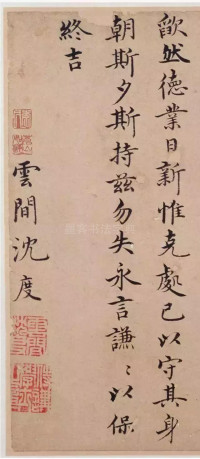 歛然德業日新惟克處己以守其身
朝斯夕斯持兹勿失永言謙〻以保
終吉
雲間沈度